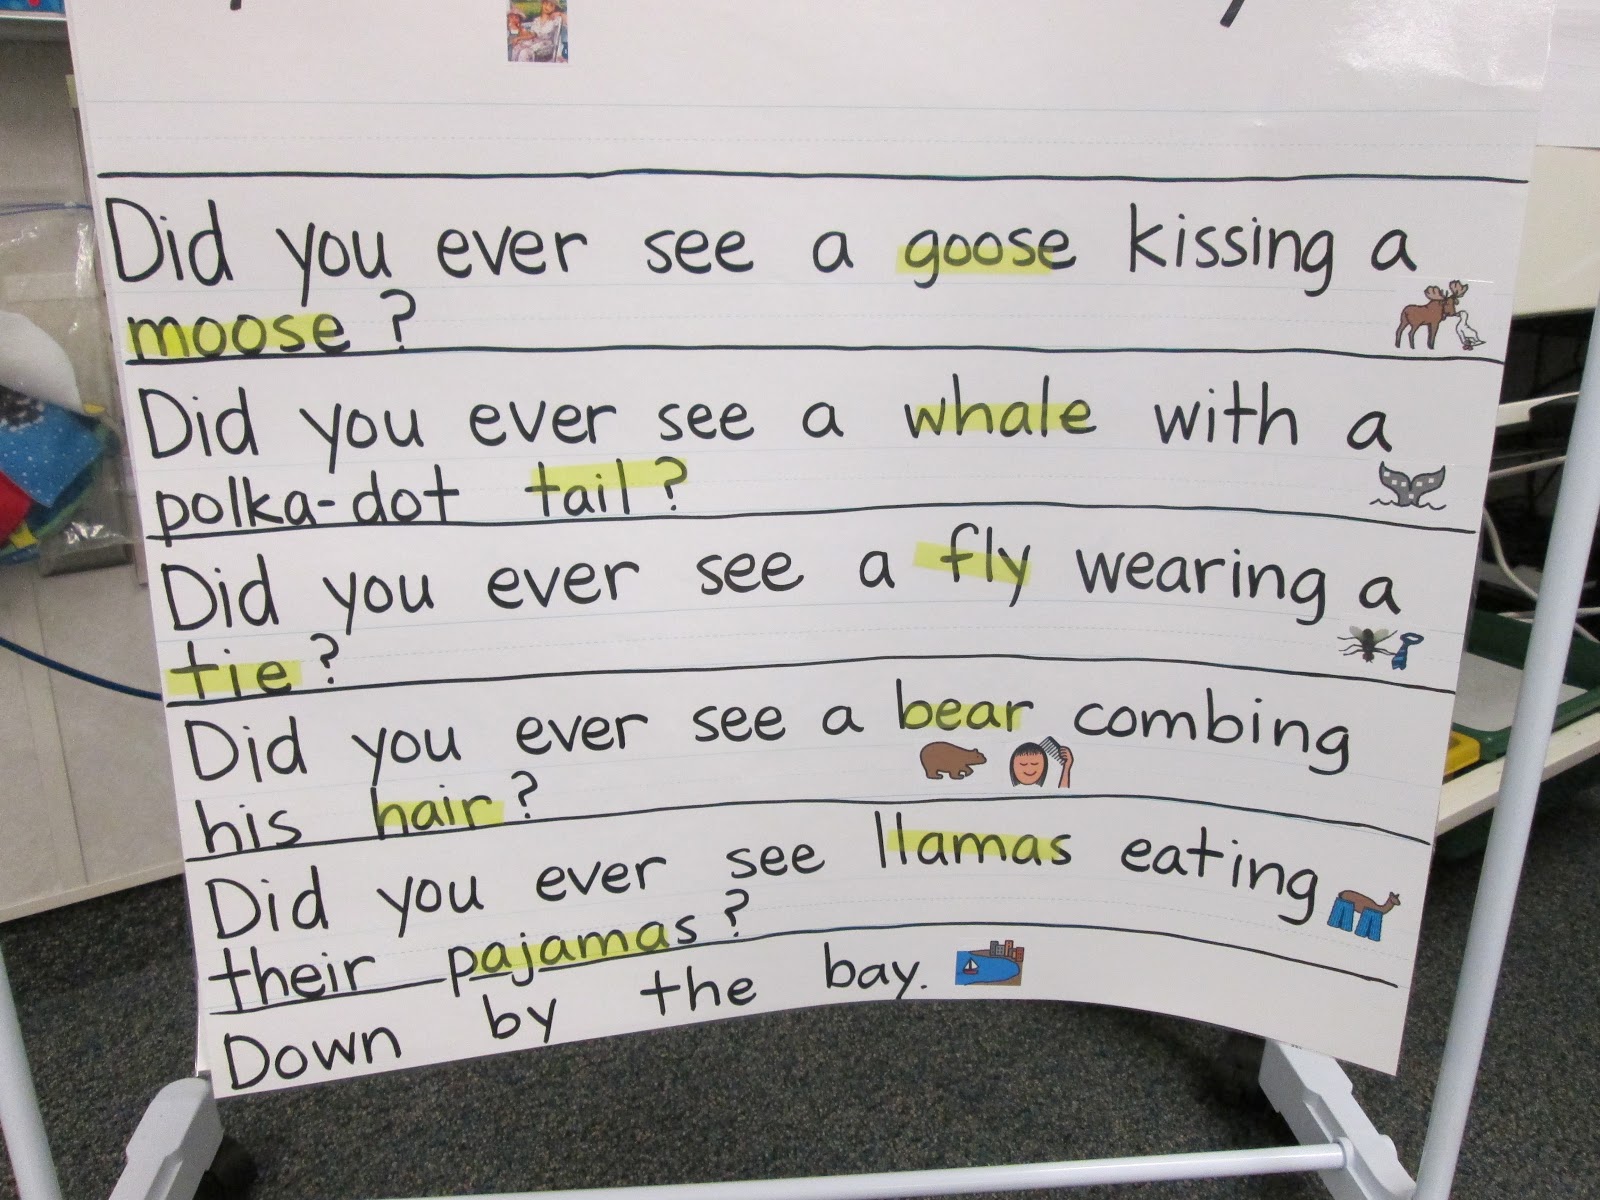 Did you ever see a goose kissing a
moose?
Did you ever see a whale with a
polka-dot tail?
Did you ever see a fly wearing a
tie?
Did you ever see a bear combing
his hair?
Did you ever see llamas eating
their pajamas?
Down by the bay.